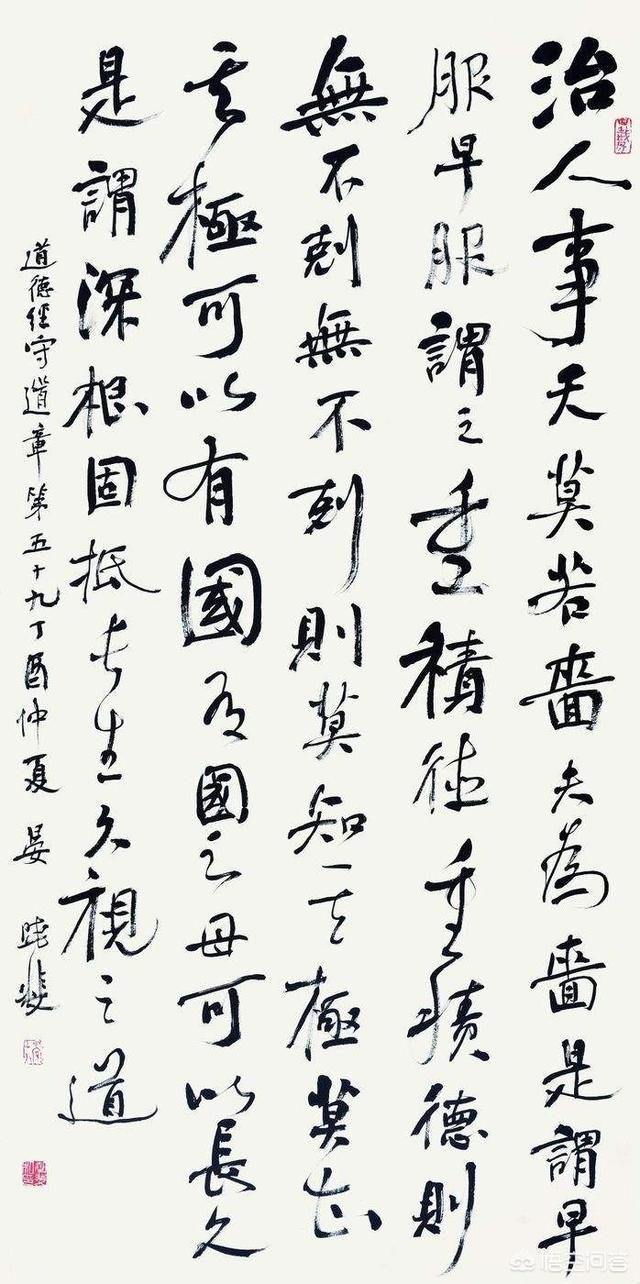 治人事天莫若嗇夫為嗇是謂早
服早服謂之重積德重積德則
無不剋無不剋則莫知其極莫知
其極可以有國有國之母可以長久
是謂深根固柢長生久視之道
道德經守道章第五十九丁酉仲夏 晏
悟空问答